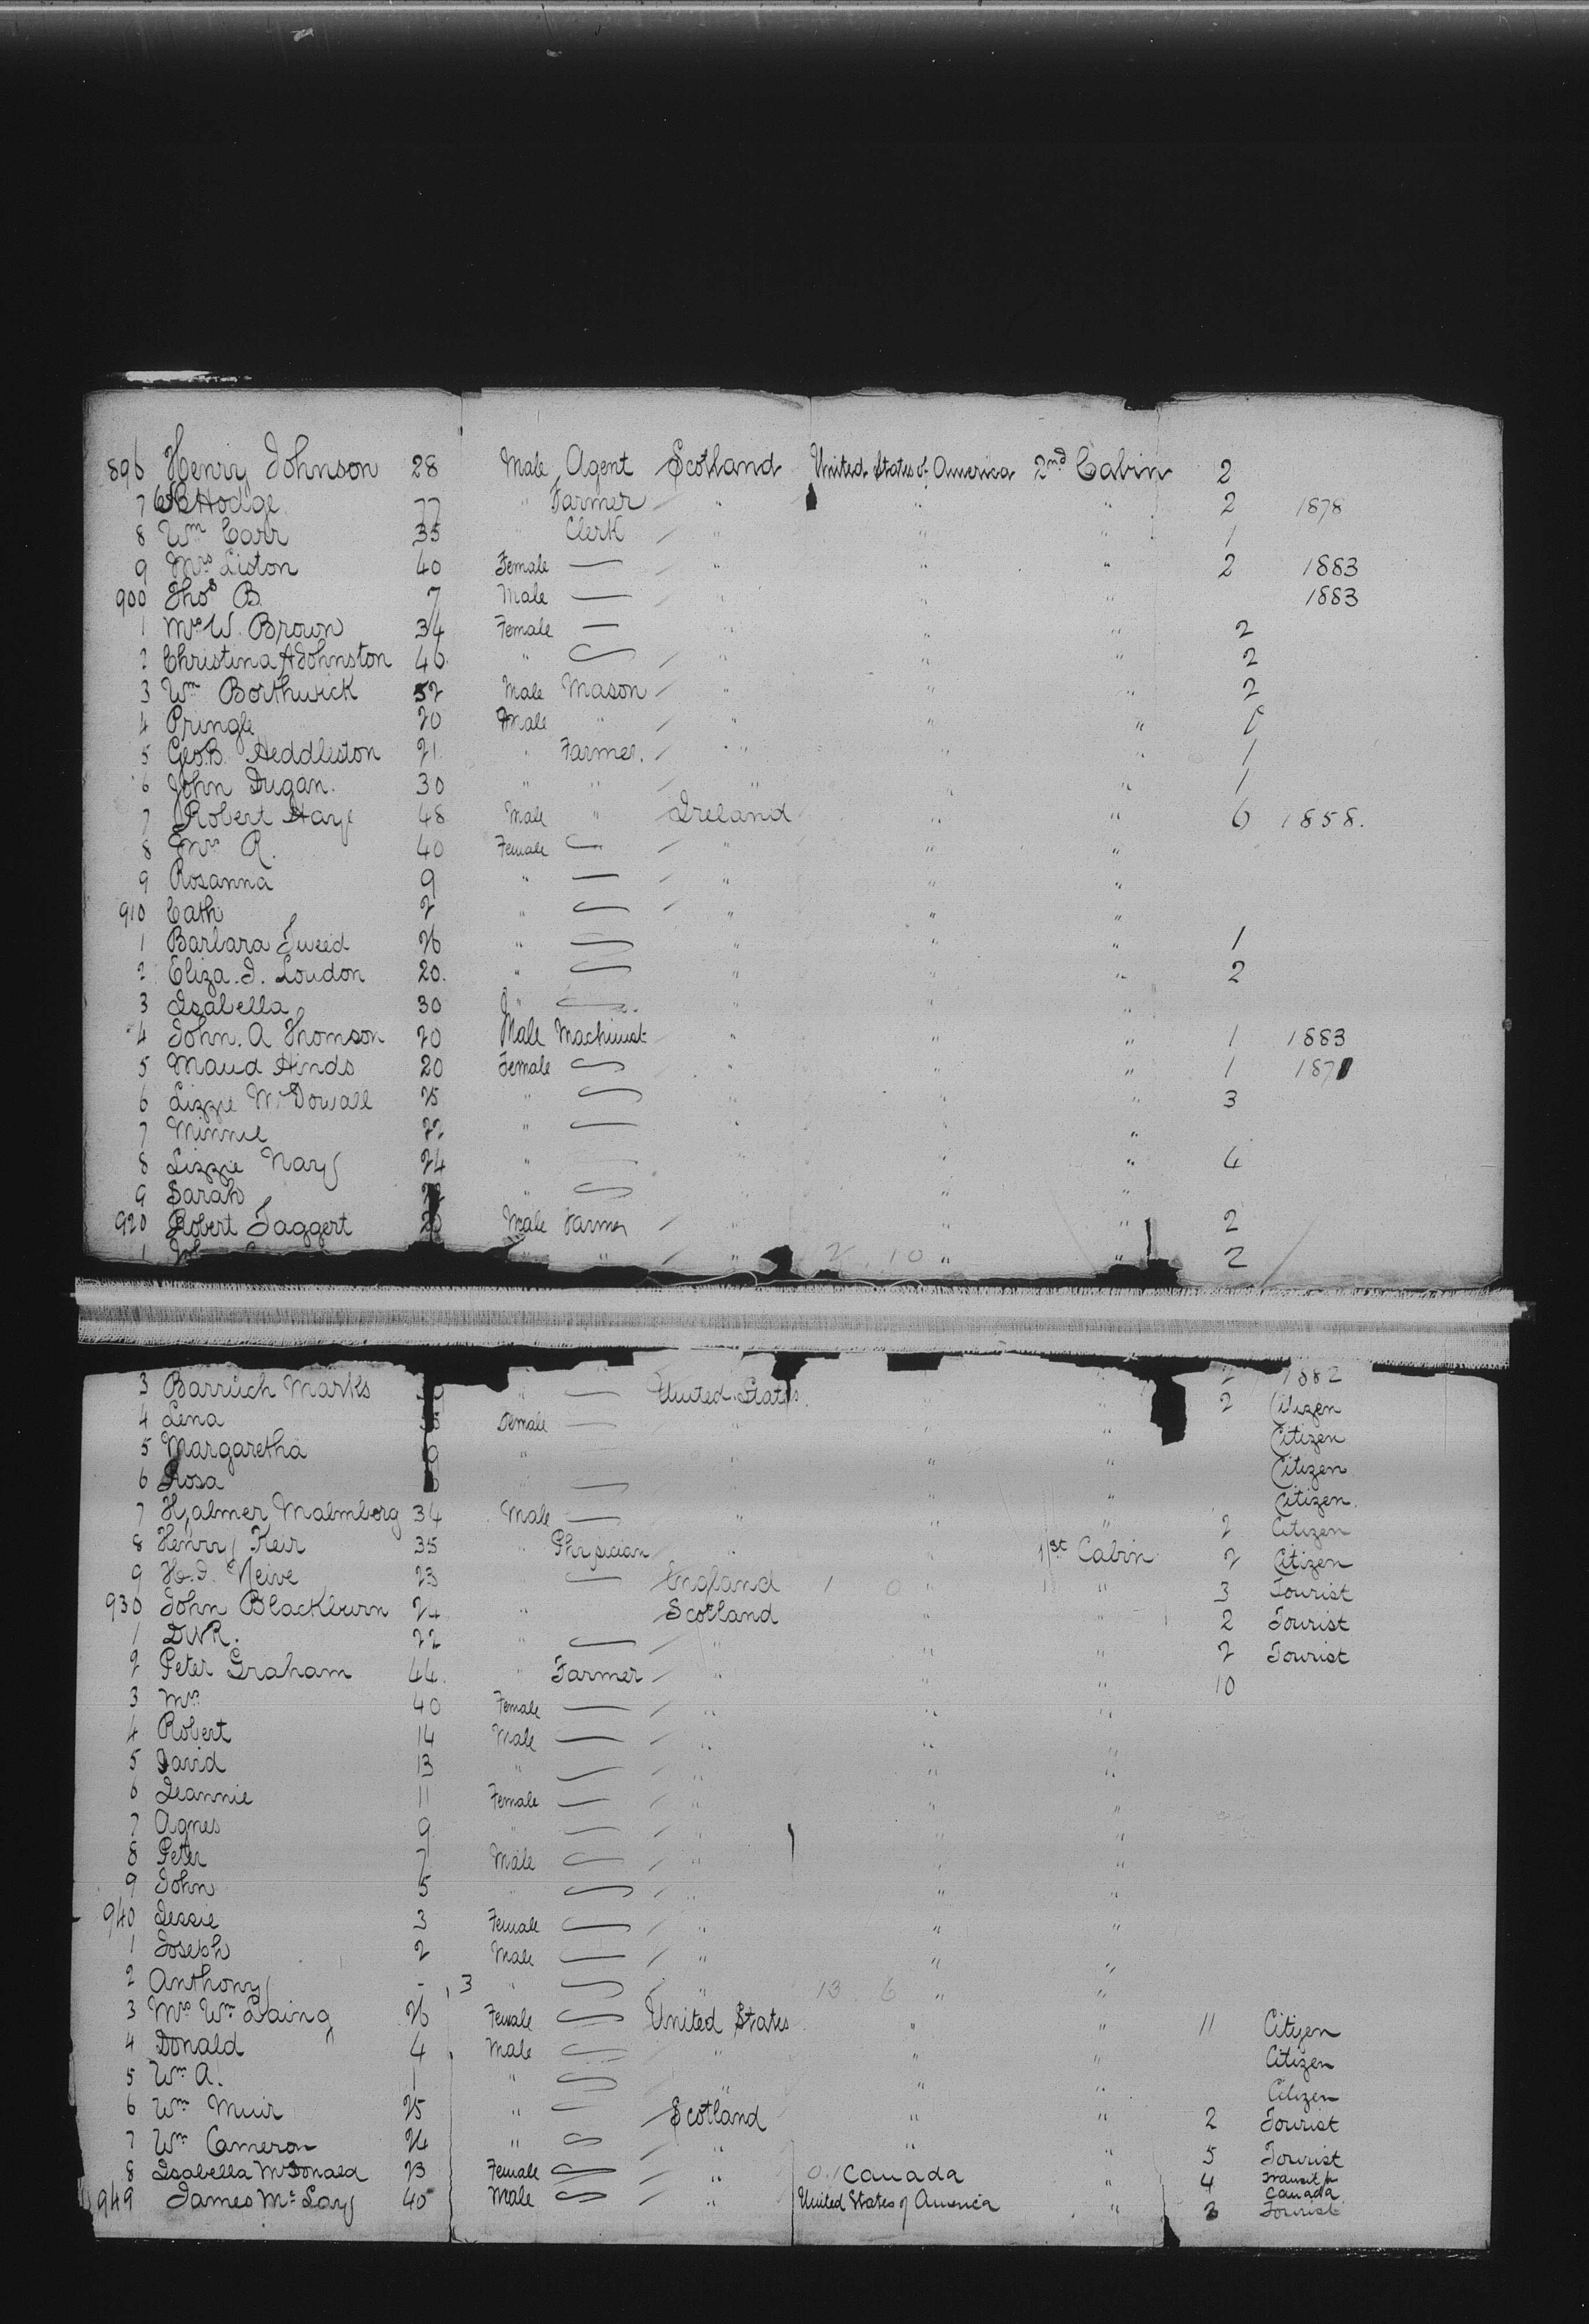 896 Henry Johnson 28 Male Agent Scotland United States of America 2nd Cabin 2
7 Hodge 77 " Farmer " " " 2 1878
8 Wm Carr 35 " Clerk " " " 1
9 Mrs Liston 40 Female — " " " 2 1883
900 Thos B. 7 Male — " " " 1883
1 Mrs W. Brown 34 Female — " " " 2
2 Christina A Johnston 46 " — " " " 2
3 Wm Borthwick 52 Male Mason " " " 2
4 Pringle 20 Male " " " "
5 Geo. B. Heddleston 21 " Farmer. " " " 1
6 John Dugan. 30 " " " " " 1
7 Robert Hay 48 Male " Ireland " " 6 1858.
8 Mrs R. 40 Female — " " "
9 Rosanna 9 " — " " "
910 Cath 2 " — " " "
1 Barbara Tweed 26 " — " " " 1
2 Eliza. J. Loudon 20. " — " " " 2
3 Isabella 30 " — " " "
4 John. A Thomson 20 Male Machinist " " " 1 1883
5 Maud Hinds 20 Female — " " " 1
6 Lizzie McDowall 25 " — " " " 3
7 Minnie 22 " — " " "
8 Lizzie 24 " — " " " 4
9 Sarah " — " " "
920 Robert Taggert 20 Male Farmer " " " 2
1 " " " 2 10 " " 2
1882
3 Barruch Marks " — United States. " " 2 Citizen
4 Lena Female — " " " Citizen
5 Margaretha " " " " Citizen
6 Rosa " — " " " Citizen.
7 Hjalmer Malmberg 34 Male — " " " 2 Citizen
8 Henry Keir 35 " Physician " " 1st Cabin 2 Citizen
9 H. J. Neive 23 — England 1 0 " " 3 Tourist
930 John Blackburn 24 " Scotland " " 2 Tourist
1 22 — " " " 2 Tourist
2 Peter Graham 44. " Farmer " " " 10
3 Mrs 40 Female — " " "
4 Robert 14 Male — " " "
5 David 13 " — " " "
6 Jeannie 11 Female — " " "
7 Agnes 9 " — " " "
8 Peter 7 Male — " " "
9 John 5 " — " " "
940 Jessie 3 Female — " " "
1 Joseph 2 Male — " " "
2 Anthony - 3 " — " 13 6 " "
3 Mrs Wm Laing 26 Female — United States " " 11 Citizen
4 Donald 4 Male — " " " Citizen
5 Wm A. 1 " — " " " Citizen
6 Wm Muir 25 " — Scotland " " 2 Tourist
7 Wm Cameron 24 " — " " " 5 Tourist
8 Isabella McDonald 23 Female — " 0.1 Canada " 4 Transit to Canada
949 James McLay 40 Male — " United States of America " Tourist